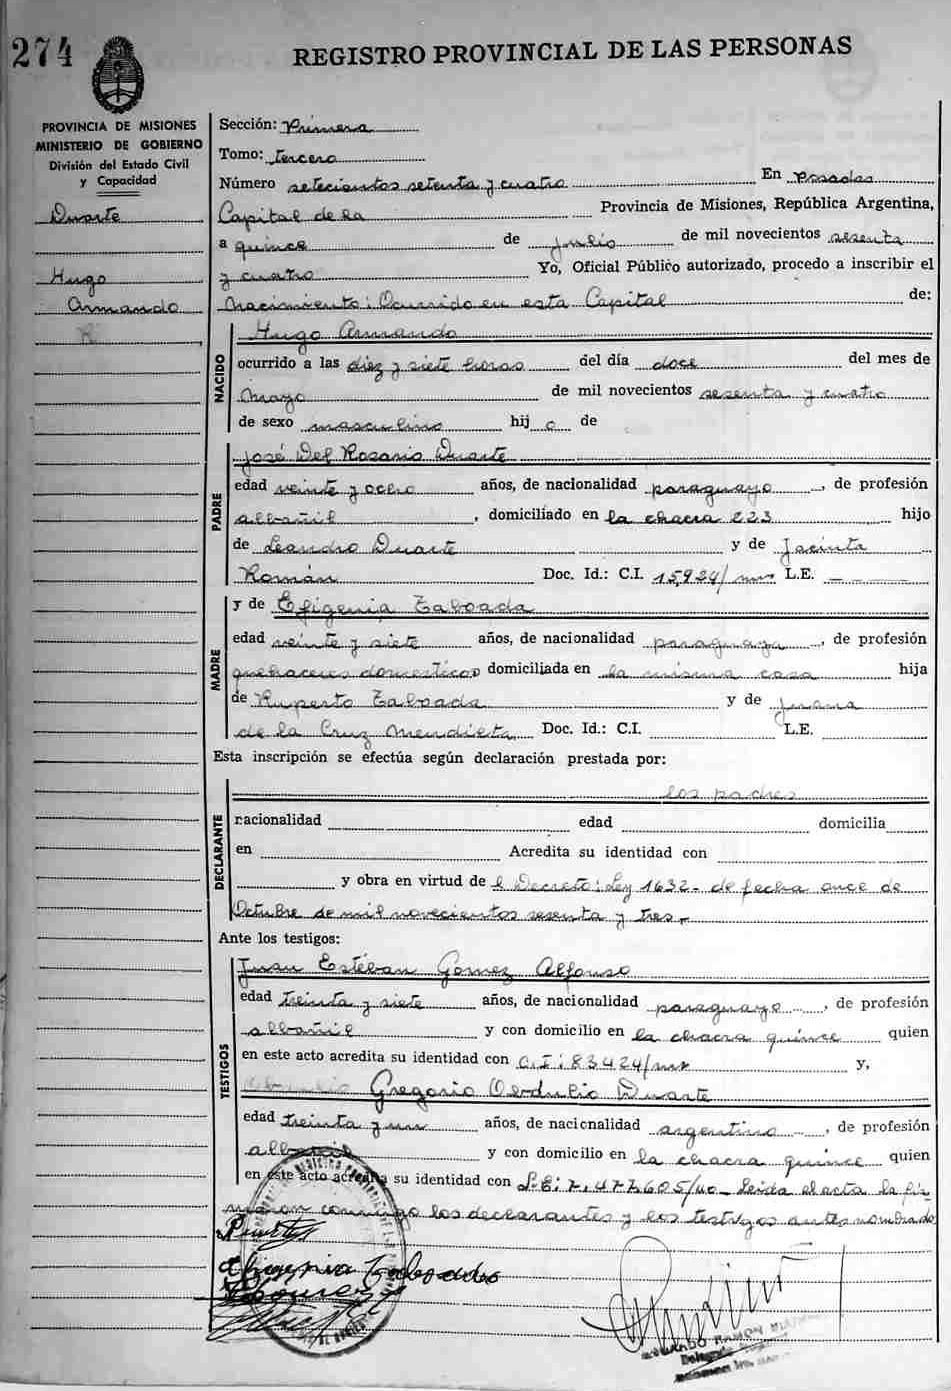 274
REGISTRO PROVINCIAL DE LAS PERSONAS
PROVINCIA DE MISIONES
MINISTERIO DE GOBIERNO
División del Estado Civil
y Capacidad
Duarte
Hugo
Armando
Sección: Primera
Tomo: tercero
Número setecientos setenta y cuatro En Posadas
Capital de la Provincia de Misiones, República Argentina,
a quince de Julio de mil novecientos sesenta
y cuatro Yo, Oficial Público autorizado, procedo a inscribir el
Nacimiento: Ocurrido en esta Capital de:
NACIDO
Hugo Armando
ocurrido a las diez y siete horas del día doce del mes de
Mayo de mil novecientos sesenta y cuatro
de sexo masculino hijo de
PADRE
José Del Rosario Duarte
edad veinte y ocho años, de nacionalidad paraguayo, de profesión
albañil, domiciliado en la chacra 223 hijo
de Leandro Duarte y de Jacinta
Román Doc. Id.: C.I. 15924/mns L.E.
MADRE
y de Efigenia Taboada
edad veinte y siete años, de nacionalidad paraguaya, de profesión
quehaceres domesticos domiciliada en la misma casa hija
de Ruperto Taboada y de Juana
de la Cruz Mendieta Doc. Id.: C.I. L.E.
Esta inscripción se efectúa según declaración prestada por:
DECLARANTE
los padres
nacionalidad edad domicilia
en Acredita su identidad con
y obra en virtud de l Decreto: Ley 1632- de fecha once de
Octubre de mil novecientos sesenta y tres.-
Ante los testigos:
TESTIGOS
Juan Estéban Gomez Alfonso
edad treinta y siete años, de nacionalidad paraguayo, de profesión
albañil y con domicilio en la chacra quince quien
en este acto acredita su identidad con C.I: 83424/mns y,
Gregorio Obdulio Duarte
edad treinta y un años, de nacionalidad argentino, de profesión
albañil y con domicilio en la chacra quince quien
en este acto acredita su identidad con L.E: 7.477.605/ Leida el acta la fir
maron conmigo los declarantes y los testigos antes nombrado
Efigenia Taboada
RAMON